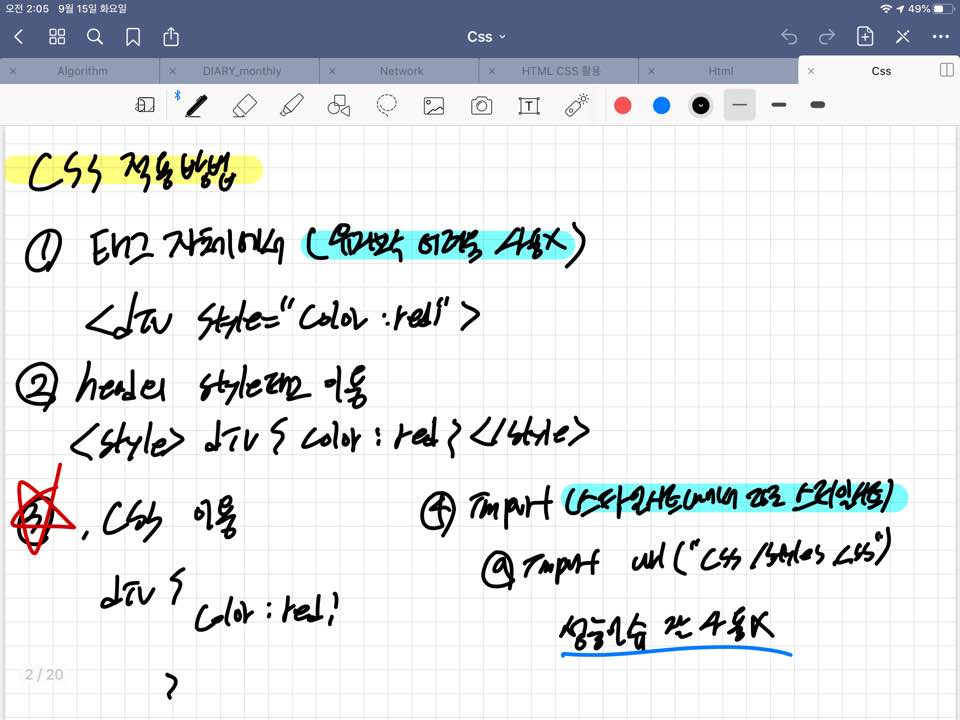 오전 2:05 9월 15일 화요일
49%
Css
Algorithm
DIARY_monthly
Network
HTML CSS 활용
Html
Css
T
CSS 적용방법
① 태그 자체에서 (유지보수 어려움 사용X)
<div style="color:red;">
② header style태그 이용
<style> div { color : red } </style>
③ .CSS 이용
div {
color : red;
}
④ Import (스타일시트내에 다른 스타일시트)
@ Import url ("css/styles.css")
성능이슈 잘 사용X
2 / 20